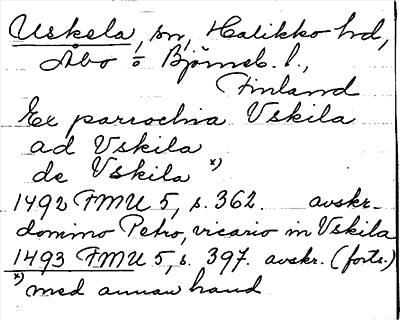 Uskela, sn, Halikko hd,
Åbo o Björneb. l.,
Finland
Ex parrochia Vskila
ad Vskila
de Vskila x)
1492 FMU 5, s. 362. avskr.
domino Petro, vicario in Vskila
1493 FMU 5, s. 397. avskr. (forts.)
x) med annan hand